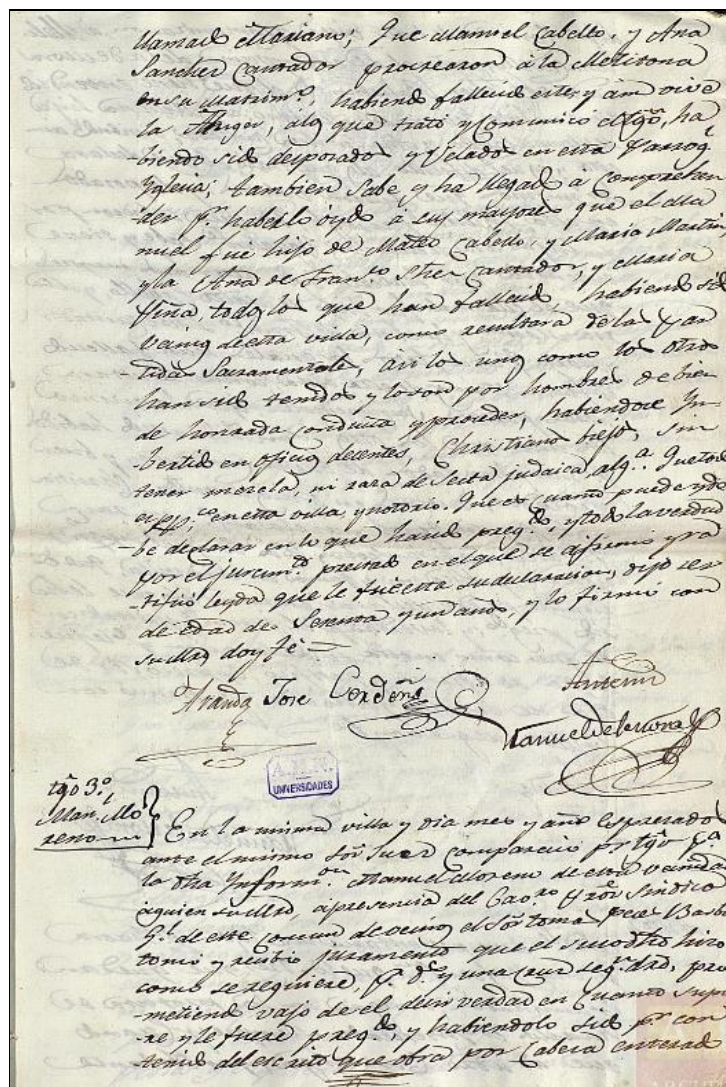 llamado Mariano; Que Manuel Cabello, y Ana
Sanchez Cantador procrearon à la Melitona
en su Matrimº, habiendo fallecido este, y aun vive
la Muger, alos que trató y Comunicó el tgº, ha
-biendo sido desposados y Velados en esta Parroql
Yglesia; tambien Sabe y ha llegado à Comprehen
-der pr haberlo oydo à sus mayores que el Ma
nuel fue hijo de Mateo Cabello, y Maria Martin,
y la Ana de Franco Shez Cantador, y Maria
Viña, todos los que han fallecido, habiendo sido
Vecinos de esta villa, como resultará de las Par
-tidas Sacramentales, asi los unos como los otros
han sido tenidos y lo son por hombres de bien
de honrada Conducta y proceder, habiendose Yn
bertido en oficios decentes, Christianos biejos, sin
tener mezcla, ni raza de Secta judaica algª. Que todo
es ppco en esta villa y notorio. Que es quanto puede y de
-be declarar en lo que ha sido pregdo, y todo la verdad
por el juramto prestado en el que se afirmó y ra
-tificó leyda que le fue esta su declaracion, dijo ser
de edad de Sesenta y un años, y lo firmó con
su Mrd doy fé =
Aranda Jose Cerdeña
Antemi
Manuel de
A.H.N.
UNIVERSIDADES
tgo 3º
Manl Mo
reno
En la misma villa y dia mes y año espresados
ante el mismo Sor Juez Comparecio por tgo pª
la dha Informon Manuel Moreno de esta vecindad
aquien su Mrd, a presencia del Cavro Pror Sindico
Gl de este comun de vecinos el Sor Tomas
tomó y recibió juramento que el susodho hizo
como se requiere, pr Ds y una Cruz segn dro, pro
metiendo vajo de el decir verdad en Cuanto supie
-re y le fuere pregdo, y habiendolo sido pr el con
tenido del escrito que obra por Cabeza enterado